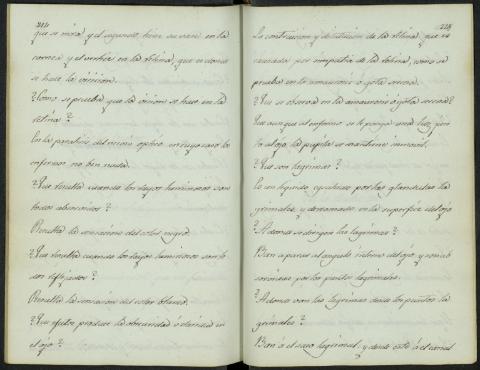 224
que se mira, y el segundo, tiene su vase en la
cornea y el vertice en la retina, que es donde
se hace la vicion.
?Como se prueba que la vicion se hace en la
retina?
En la paralisis del nervio optico en cuyo caso los
enfermos no ben nada.
?Que resulta cuando los rayos luminosos son
todos absorvidos?
Resulta la sensacion del color negro.
?Que resulta cuando los rayos luminosos son to
dos reflejados?
Resulta la sensacion del color blanco.
?Que efectos produce la obscuridad ó claridad en
el ojo?
225
La contraccion y dilatacion de la retina, que es
causada por simpatia de la retina, como se
prueba en la amaurosis ó gota serena.
?Que se observa en la amaurosis ó gota serena?
Que aunque al enfermo se le ponga una luz, junto
al ojo la pupila se mantiene inmovil.
?Que son lagrimas?
Es un liquido, espelido por las glandulas la
grimales, y derramado en la superficie del ojo
?A donde se dirigen las lagrimas?
Ban a parar al angulo interno del ojo y son ab
sorvidas por los puntos lagrimales.
?A donde van las lagrimas desde los puntos la
grimales?
Ban á el saco lagrimal, y desde este á el canal